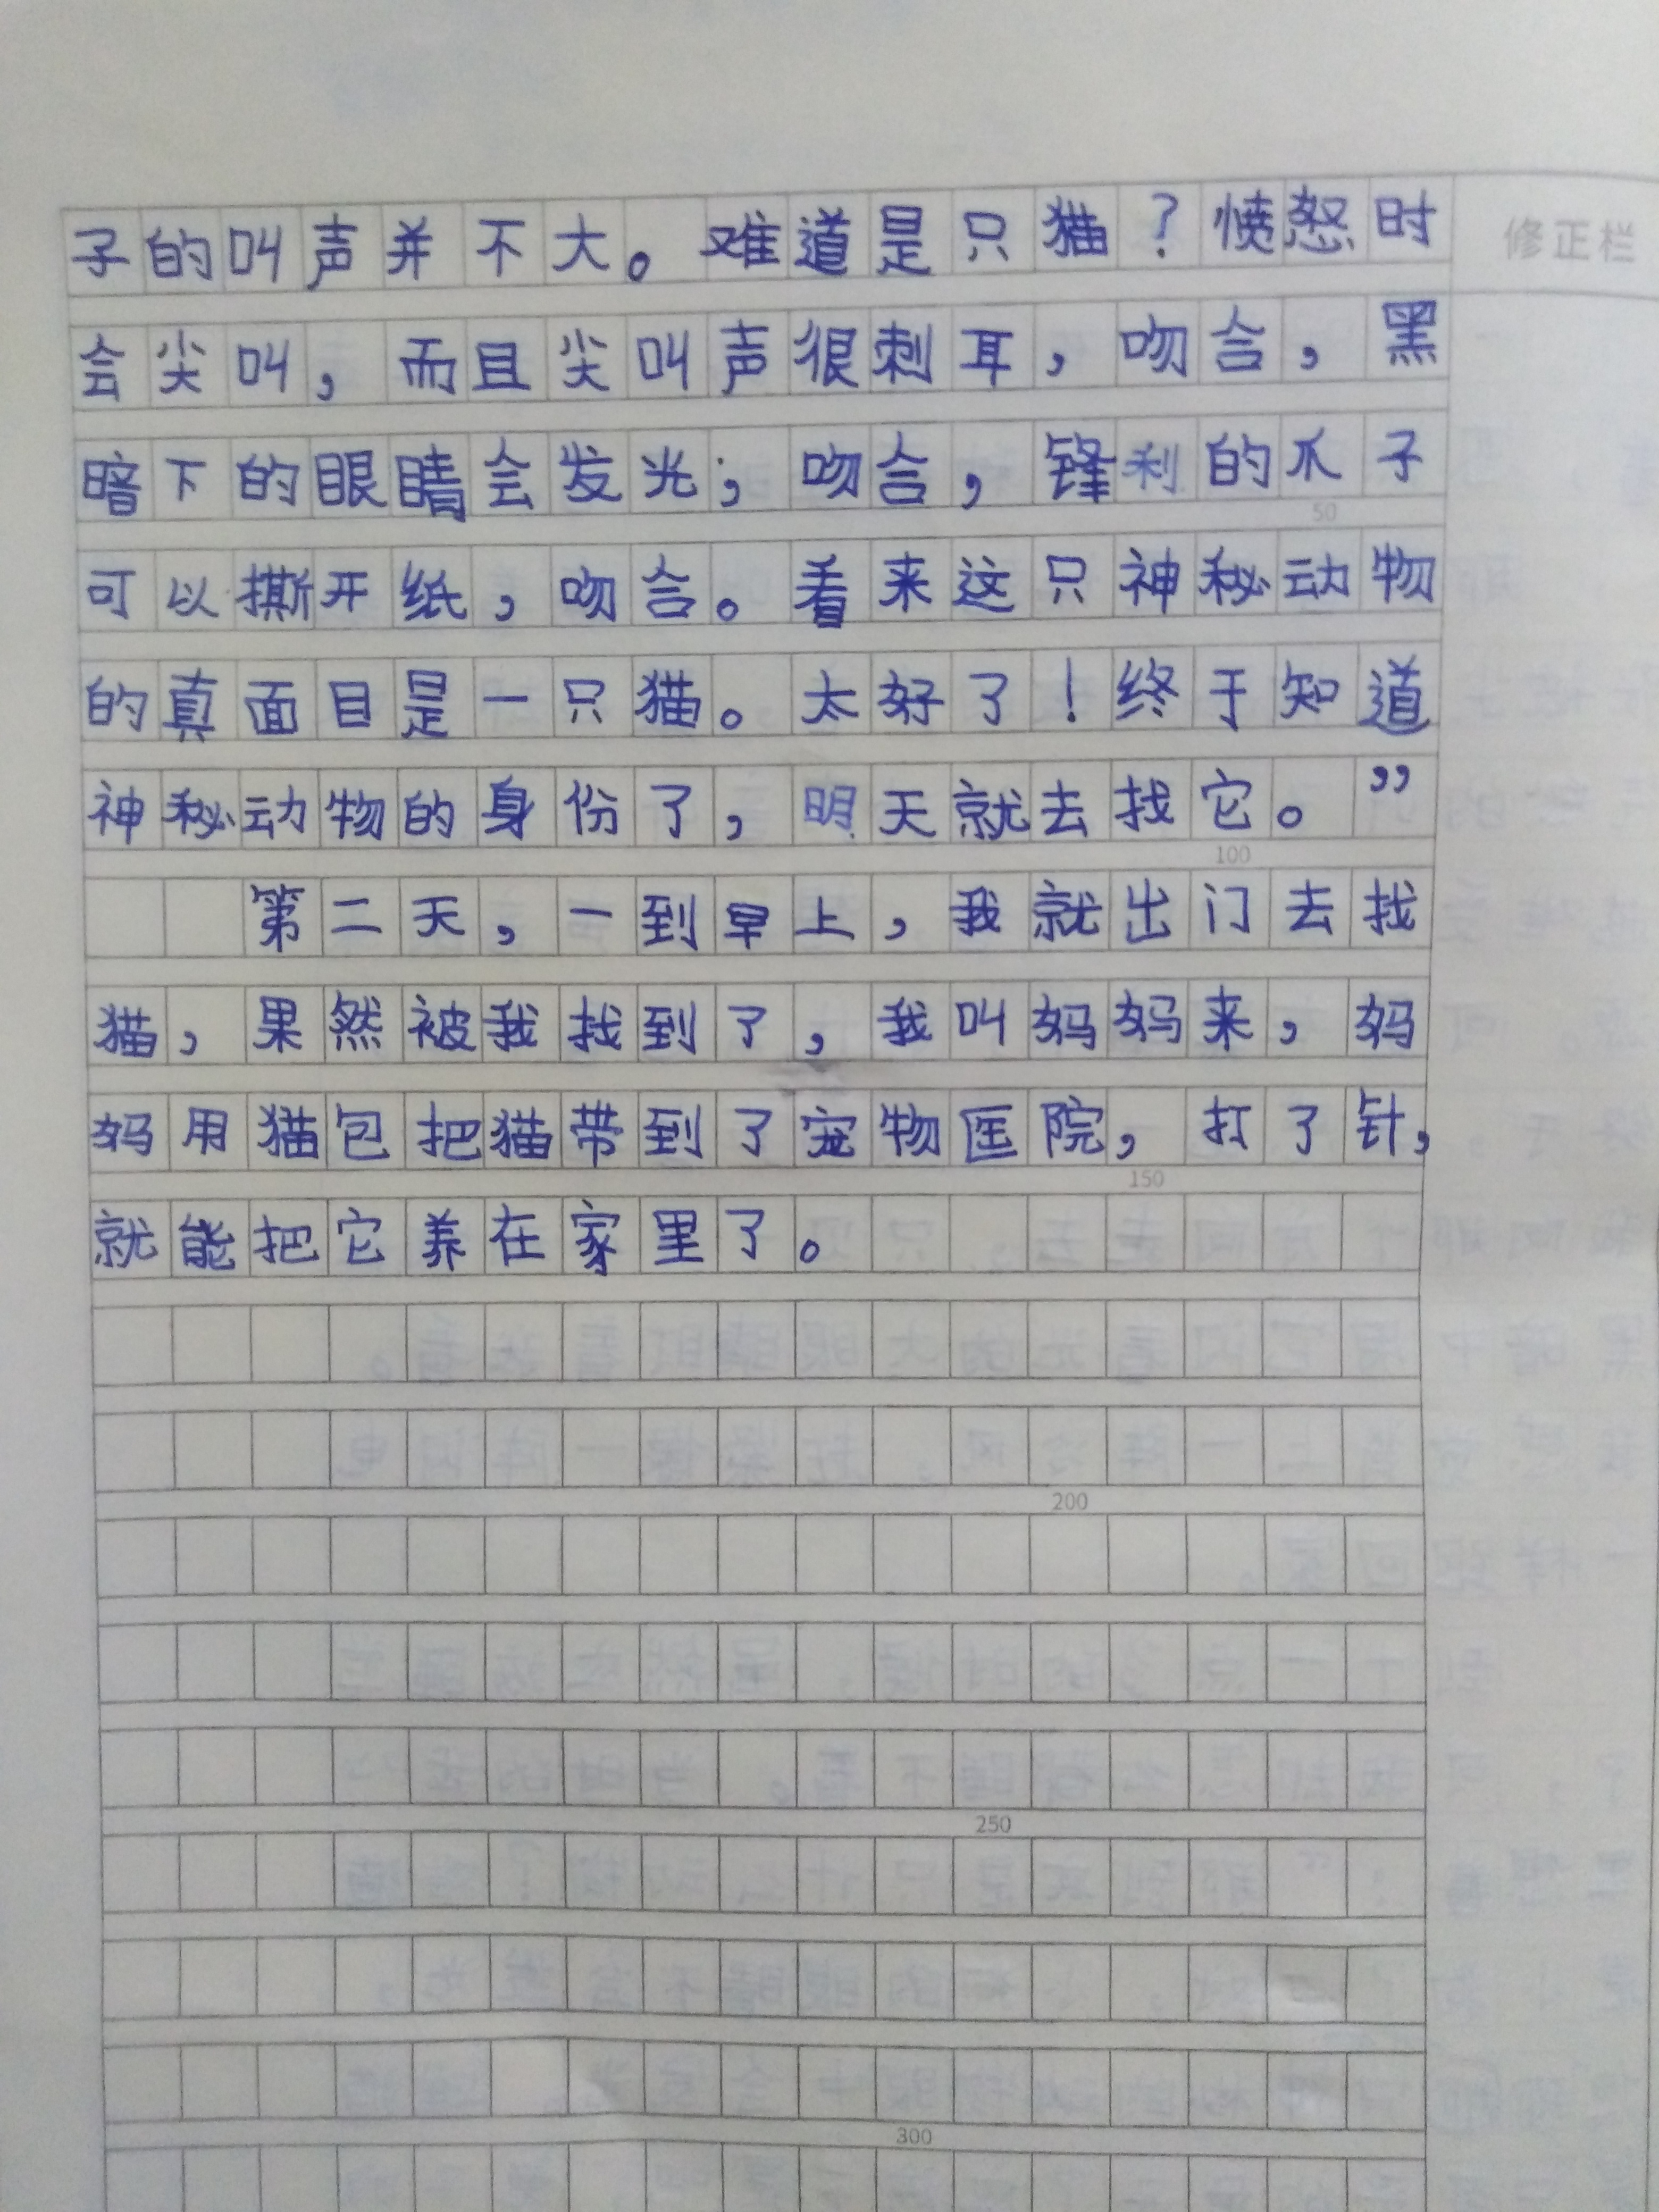 子的叫声并不大。难道是只猫？愤怒时
修正栏
会尖叫，而且尖叫声很刺耳，吻合，黑
暗下的眼睛会发光；吻合，锋利的爪子
50
可以撕开纸，吻合。看来这只神秘动物
的真面目是一只猫。太好了！终于知道
神秘动物的身份了，明天就去找它。”
100
第二天，一到早上，我就出门去找
猫，果然被我找到了，我叫妈妈来，妈
妈用猫包把猫带到了宠物医院，打了针，
150
就能把它养在家里了。
200
250
300